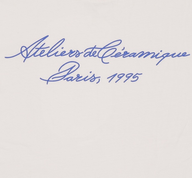 Ateliers de Céramique
Paris, 1995